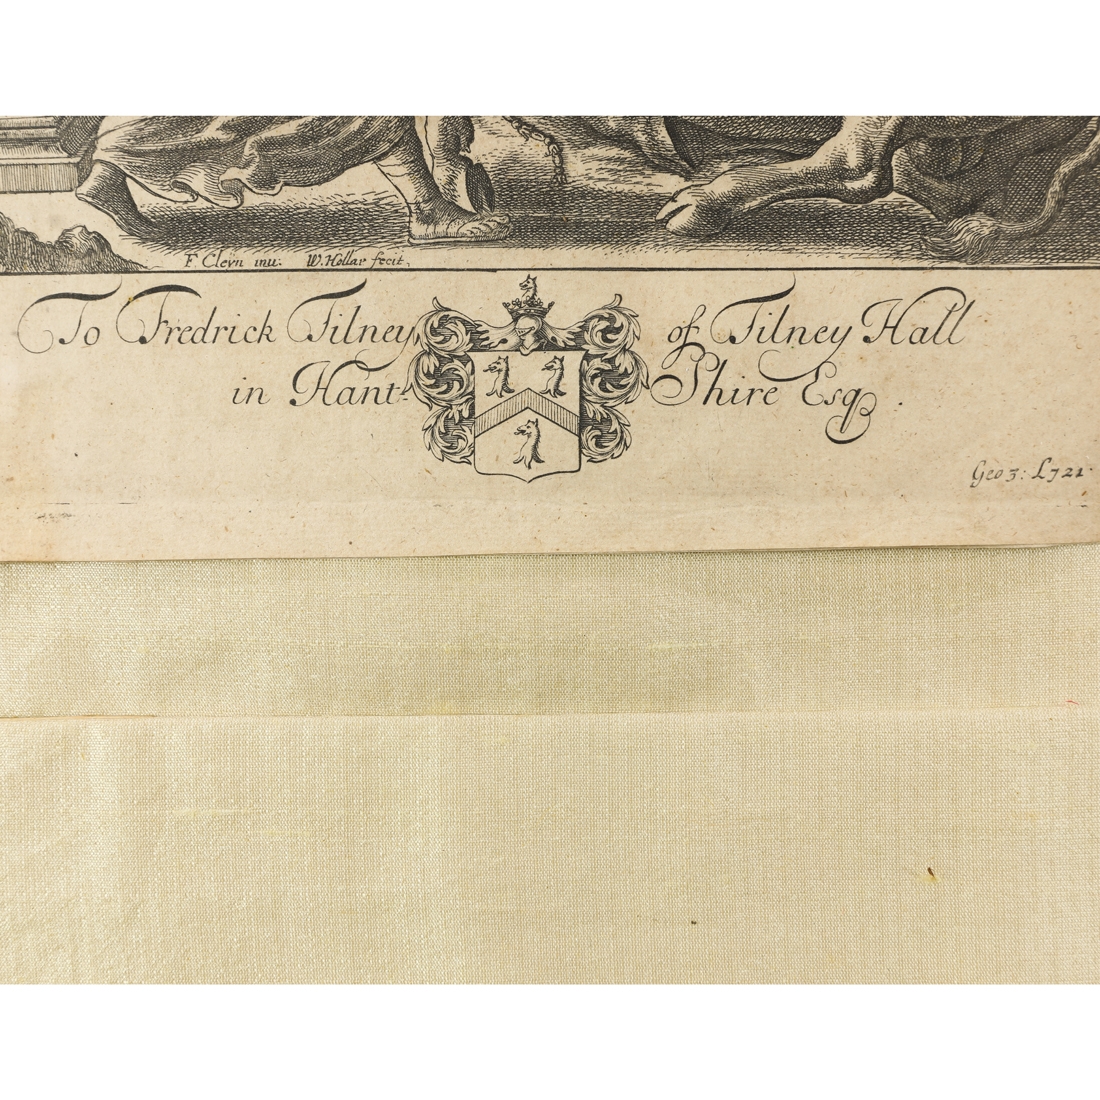 F Cleyn inu: W. Hollar fecit,
To Fredrick Tilney, of Tilney Hall
in Hant- Shire Esq
Geo 3: L721.